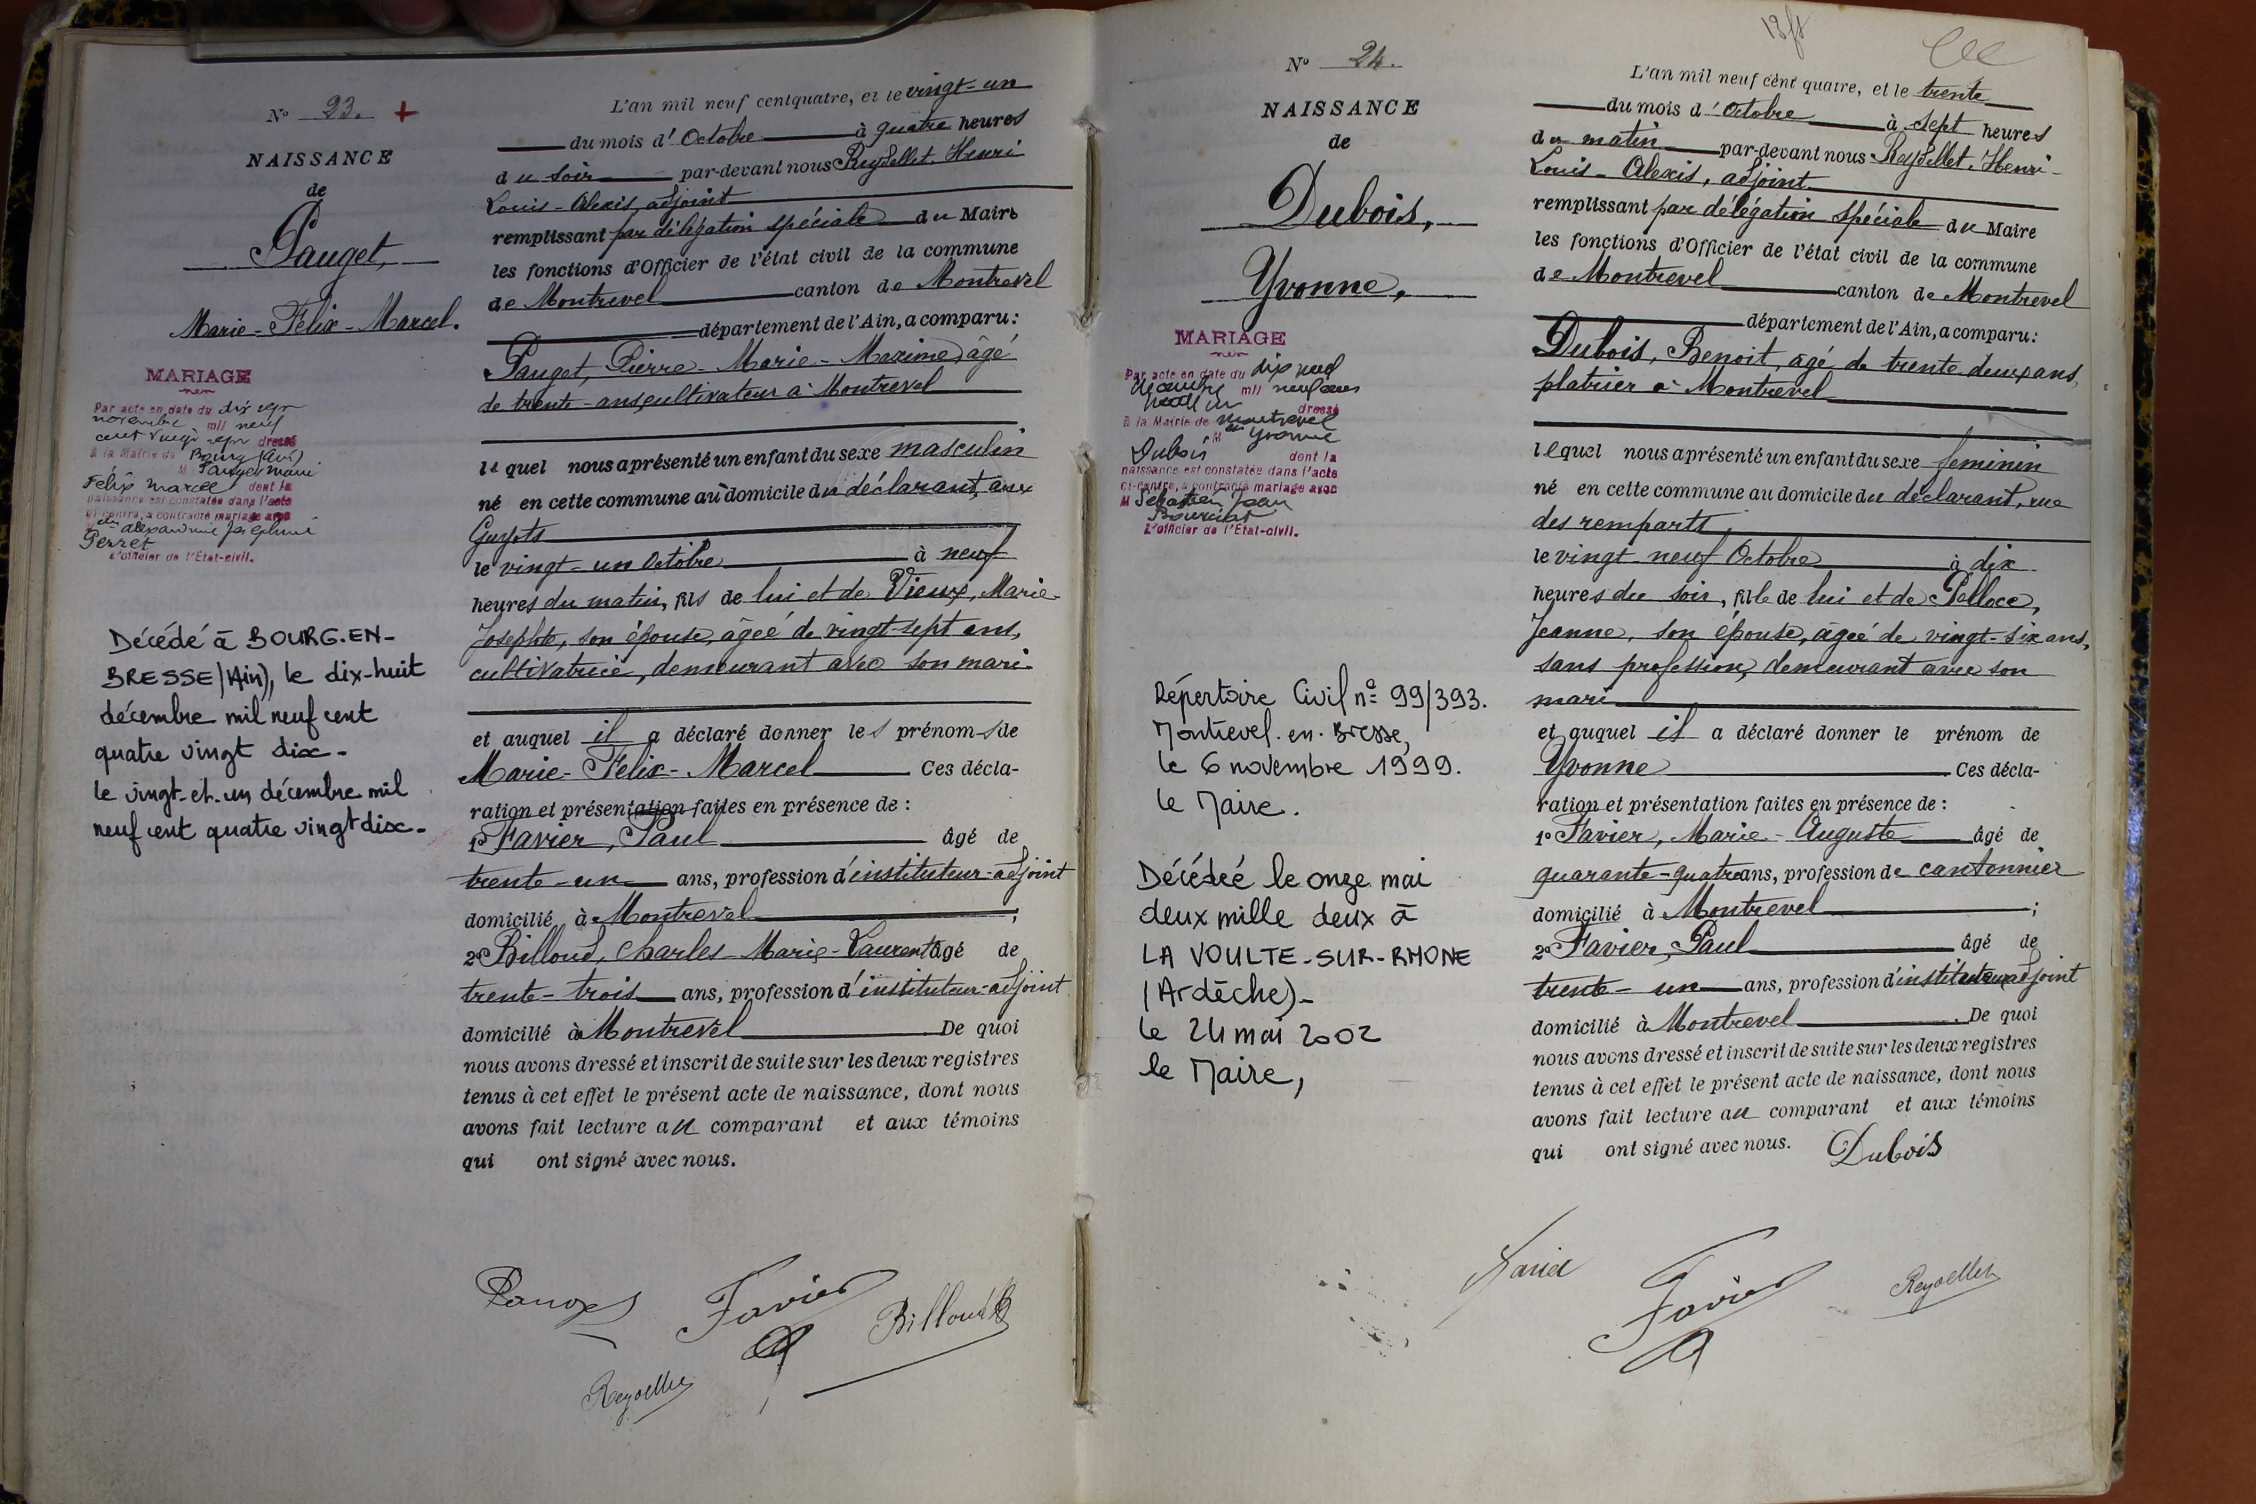 Nº 23. +
NAISSANCE
de
Pauget,
Marie-Félix-Marcel.
MARIAGE
Par acte en date du dix sept
novembre mil neuf
cent vingt sept dressé
à la Mairie de Bourg (Ain)
M Pauget Marie
Félix Marcel dont la
naissance est constatée dans l'acte
ci-contre, a contracté mariage avec
Mlle Alexandrine Joséphine
Perret
L'officier de l'Etat-civil.
Décédé à BOURG.EN-
BRESSE (Ain), le dix-huit
décembre mil neuf cent
quatre vingt dix -
le vingt-et-un décembre mil
neuf cent quatre vingt dix -
L'an mil neuf cent quatre, et le vingt-un
du mois d'Octobre à quatre heures
du soir par-devant nous Reydellet, Henri
Louis-Alexis, adjoint
remplissant par délégation spéciale du Maire
les fonctions d'Officier de l'état civil de la commune
de Montrevel canton de Montrevel
département de l'Ain, a comparu :
Pauget, Pierre-Marie-Maxime, âgé
de trente-ans, cultivateur à Montrevel
lequel nous a présenté un enfant du sexe masculin
né en cette commune au domicile du déclarant, aux
Guyots
le vingt-un Octobre à neuf
heures du matin, fils de lui et de Vieux, Marie-
Josephte, son épouse, âgée de vingt-sept ans,
cultivatrice, demeurant avec son mari.
et auquel il a déclaré donner les prénoms de
Marie-Félix-Marcel Ces décla-
ration et présentation faites en présence de :
1º Favier, Paul âgé de
trente-un ans, profession d'instituteur-adjoint
domicilié à Montrevel ;
2º Billoud, Charles-Marie-Laurent âgé de
trente-trois ans, profession d'instituteur-adjoint
domicilié à Montrevel De quoi
nous avons dressé et inscrit de suite sur les deux registres
tenus à cet effet le présent acte de naissance, dont nous
avons fait lecture au comparant et aux témoins
qui ont signé avec nous.
Pauget Favier Billoud
Reydellet
Nº 24.
NAISSANCE
de
Dubois,
Yvonne,
MARIAGE
Par acte en date du dix neuf
décembre mil neuf cent
dressé
à la Mairie de Montrevel
Mlle Yvonne
Dubois dont la
naissance est constatée dans l'acte
ci-contre, a contracté mariage avec
M Sébastien Jean
L'officier de l'Etat-civil.
Répertoire Civil nº 99/393.
Montrevel.en.Bresse,
le 6 novembre 1999.
le Maire.
Décédée le onze mai
deux mille deux à
LA VOULTE-SUR-RHONE
(Ardèche)-
le 24 mai 2002
le Maire,
L'an mil neuf cent quatre, et le trente
du mois d'Octobre à sept heures
du matin par-devant nous Reydellet, Henri-
Louis-Alexis, adjoint
remplissant par délégation spéciale du Maire
les fonctions d'Officier de l'état civil de la commune
de Montrevel canton de Montrevel
département de l'Ain, a comparu :
Dubois, Benoit, âgé de trente-deux ans,
platrier à Montrevel
lequel nous a présenté un enfant du sexe feminin
né en cette commune au domicile du déclarant, rue
des remparts,
le vingt-neuf Octobre à dix
heures du soir, fille de lui et de Pelloce,
Jeanne, son épouse, âgée de vingt-six ans,
sans profession, demeurant avec son
mari
et auquel il a déclaré donner le prénom de
Yvonne Ces décla-
ration et présentation faites en présence de :
1º Favier, Marie-Auguste âgé de
quarante-quatre ans, profession de cantonnier
domicilié à Montrevel ;
2º Favier, Paul âgé de
trente-un ans, profession d'instituteur adjoint
domicilié à Montrevel. De quoi
nous avons dressé et inscrit de suite sur les deux registres
tenus à cet effet le présent acte de naissance, dont nous
avons fait lecture au comparant et aux témoins
qui ont signé avec nous. Dubois
Favier Favier Reydellet